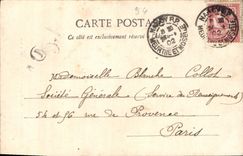 94
CARTE POSTALE
Ce côté est exclusivement réservé
NANCY R.P.
MEURTHE ET MOSELLE
02
Mademoiselle Blanche Collot
Société Générale (Service de Renseignements)
54 et 56 rue de Provence
Paris